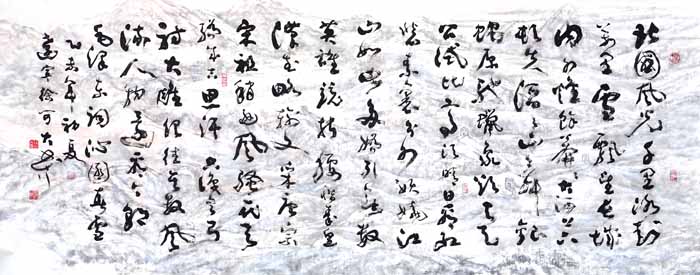 北國風光千里冰封
萬里雪飄望長城
內外惟餘莽莽大河上下
頓失滔滔山舞銀
蛇原馳蠟象欲與天
公試比高須晴日看紅
裝素裹分外妖嬈江
山如此多嬌引無數
英雄競折腰惜秦皇
漢武略輸文采唐宗
宋祖稍遜風騷一代天
驕成吉思汗只識彎弓
射大雕俱往矣數風
流人物還看今朝
毛澤東詞沁園春雪
年初夏